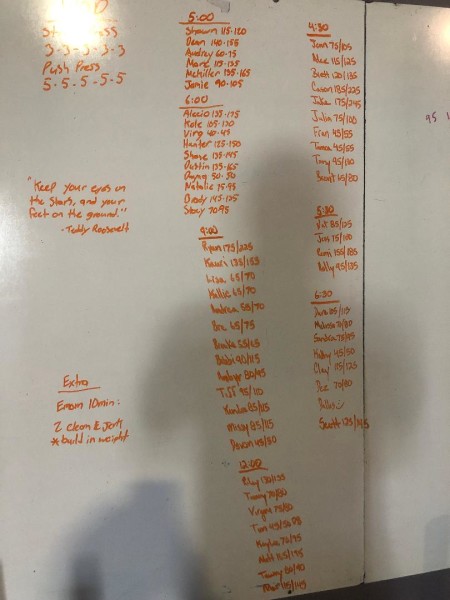 3-3-3-3-3
Push Press
5-5-5-5-5
"Keep your eyes on
the Stars, and your
feet on the ground."
-Teddy Roosevelt
Extra
Emom 10min:
2 clean & Jerk
*build in weight
5:00
Shawn 115-120
Dean 140-155
Audrey 60-75
Marc 115-135
McKiller 135-165
Jamie 90-105
6:00
Alexio 135-175
Kole 105-130
Virg 40-45
Hunter 125-150
Shane 135-145
Dustin 135-165
50-50
Natalie 75-95
Brody 145-175
Stacy 70-95
9:00
Ryan 175/225
135/155
Lisa 65/70
Kallie 65/70
Andrea 55/70
Bre 65/75
Brooke 55/65
Bobbi 90/115
80/95
Tiff 95/110
Kendra 85/115
Missy 85/115
Devon 45/50
12:00
Riley 130/155
Tammy 70/80
Virginia 75/80
Tom 45/50
Kayla 70/95
Matt 115/145
Tammy 80/90
115/145
4:30
Jenn 75/105
Alec 115/125
Brett 120/135
Carson 185/225
Jake 175/245
Julia 75/100
Fran 45/55
Teresa 45/55
Tony 95/110
65/80
5:30
85/125
Jess 75/100
155/185
Polly 95/135
6:30
85/115
Melissa 70/80
Sandra 75/95
Kelley 45/50
Clay 115/125
Dee 70/80
Scott 125/145
95